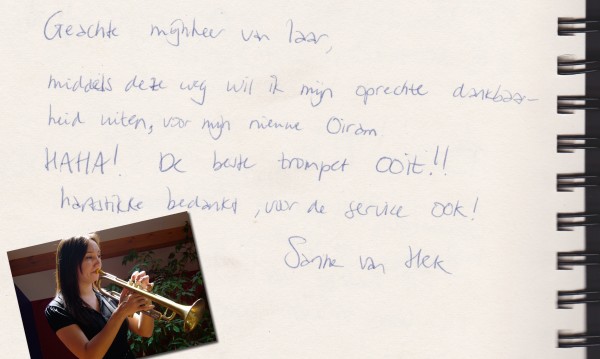 Geachte mijnheer van Laar,
middels deze weg wil ik mijn oprechte dankbaar-
heid uiten, voor mijn nieuwe Oiram.
HAHA! De beste trompet OOIT!!
hartstikke bedankt, voor de service ook!
Sanne van Hek